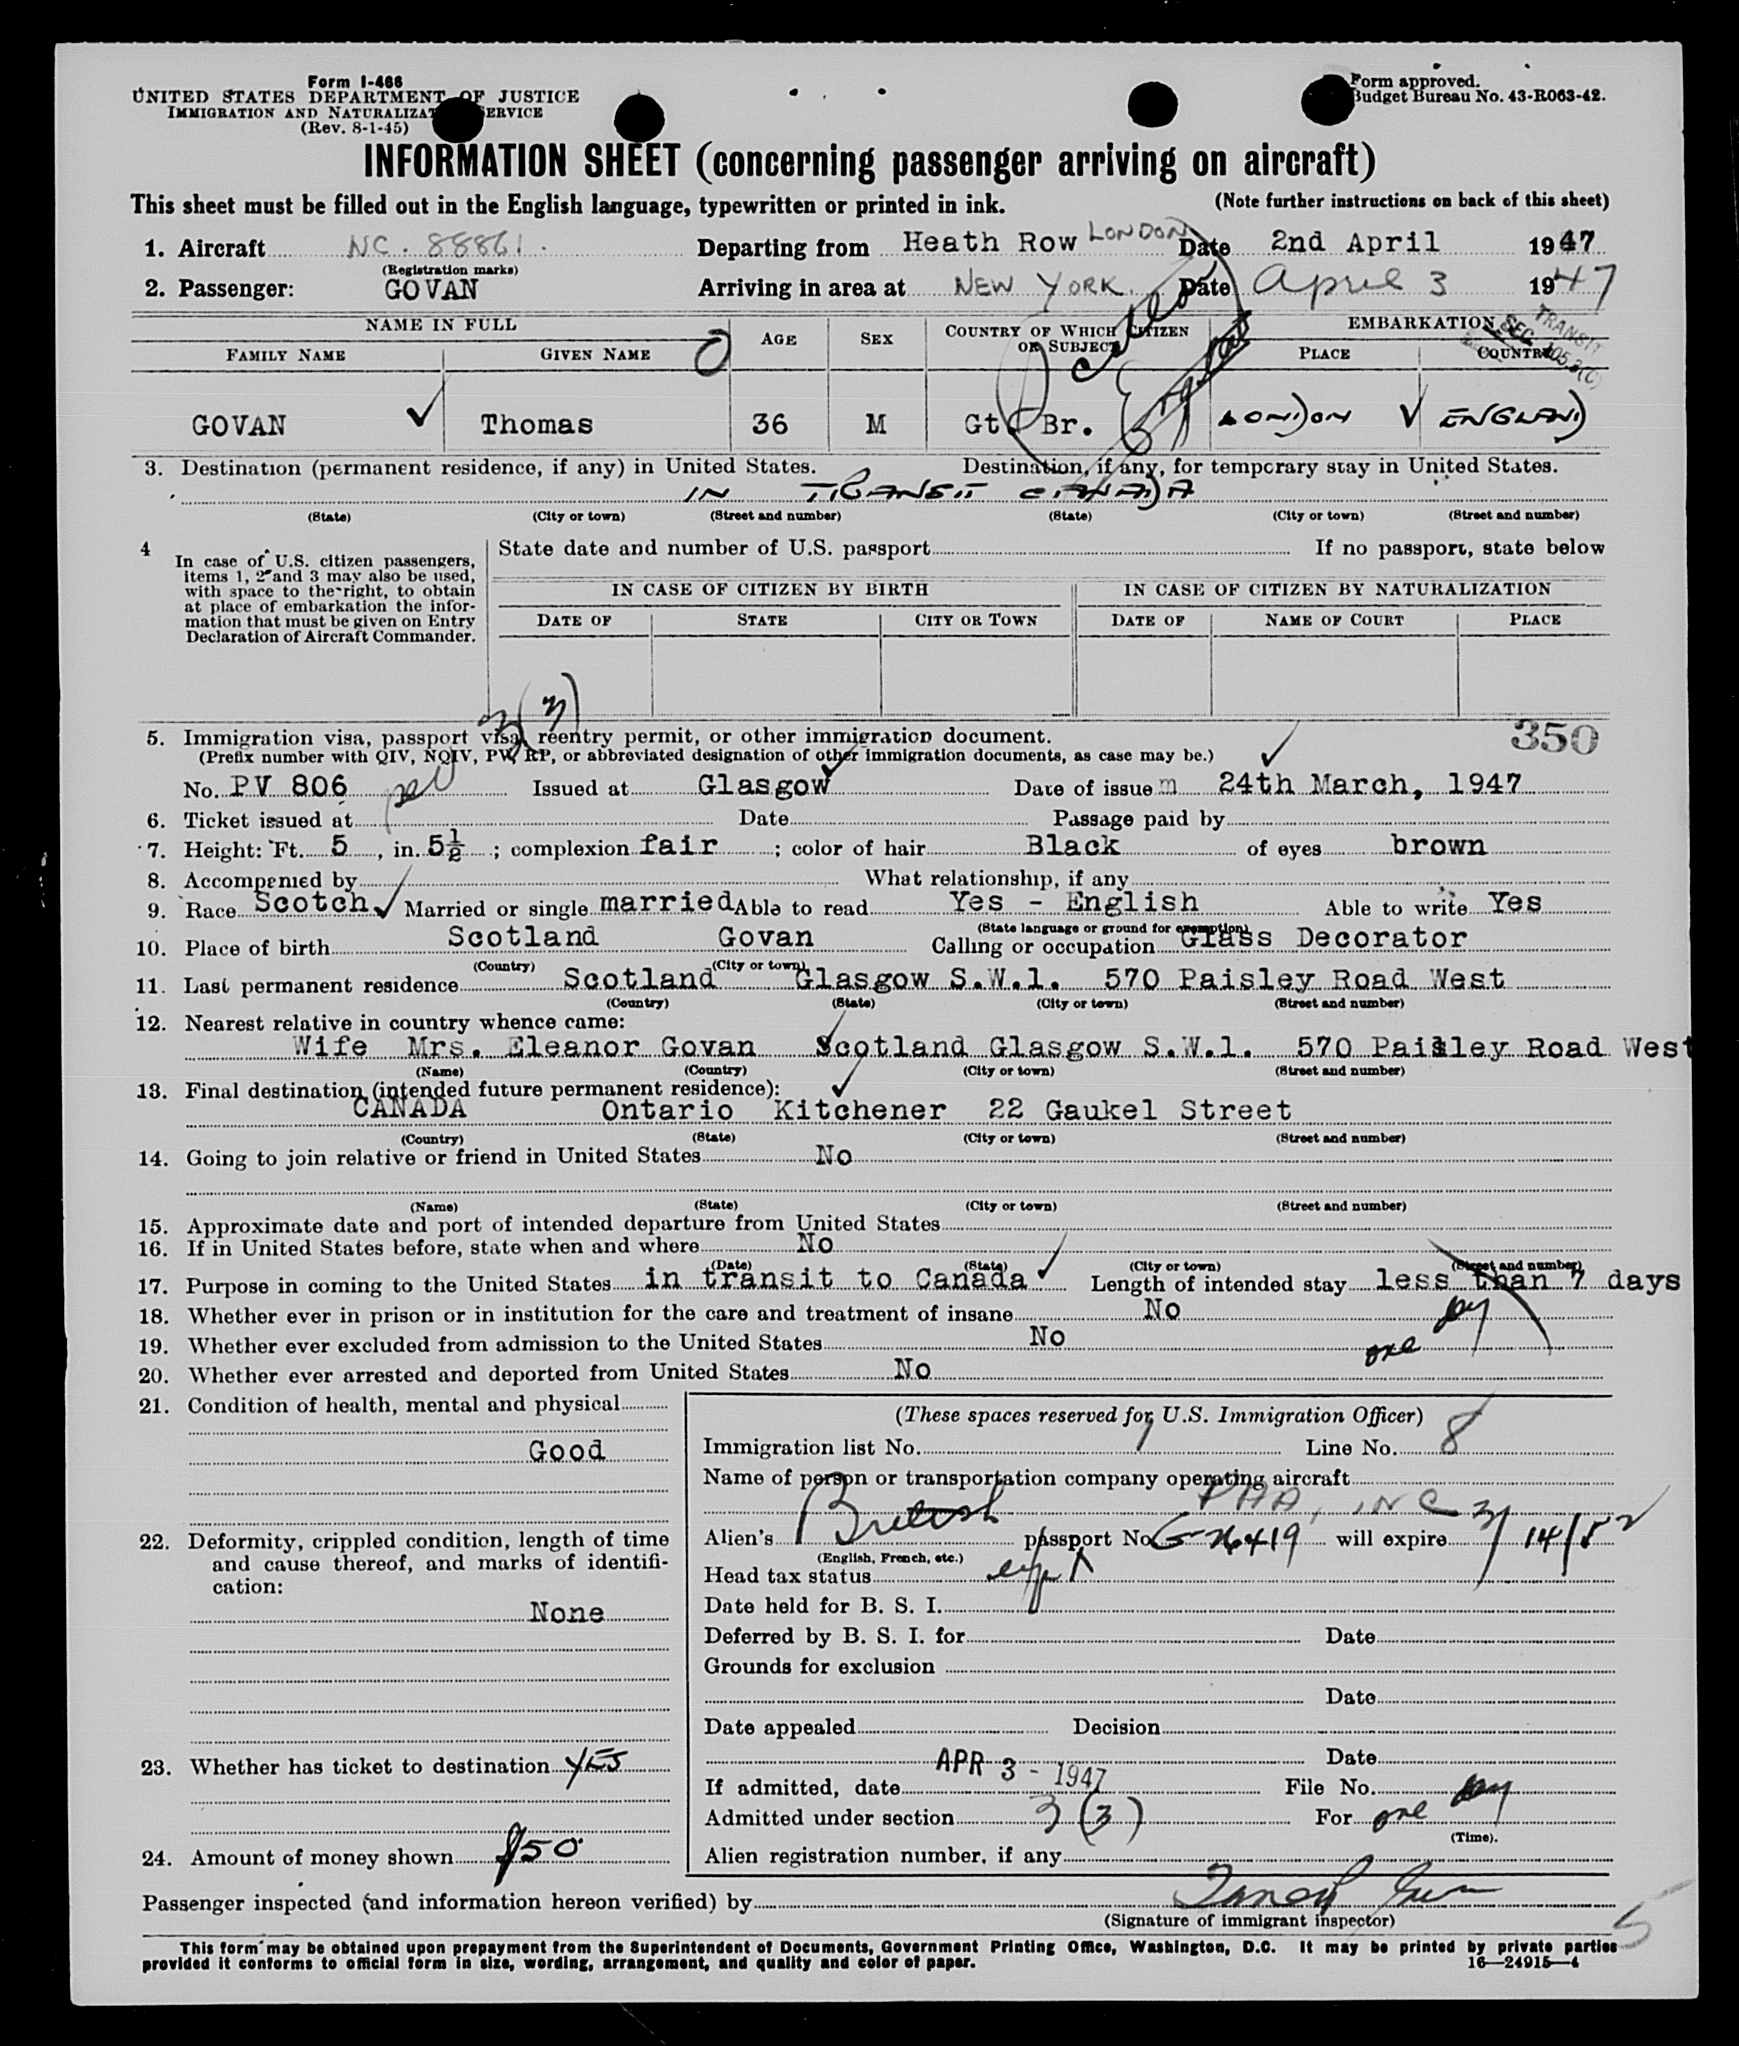 Form I-466
UNITED STATES DEPARTMENT OF JUSTICE
IMMIGRATION AND NATURALIZAT SERVICE
(Rev. 8-1-45)
Form approved.
Budget Bureau No. 43-R063-42.
INFORMATION SHEET (concerning passenger arriving on aircraft)
This sheet must be filled out in the English language, typewritten or printed in ink. (Note further instructions on back of this sheet)
1. Aircraft NC. 88861. Departing from Heath Row LONDON Date 2nd April 1947
(Registration marks)
2. Passenger: GOVAN Arriving in area at NEW YORK. Date April 3 1947
NAME IN FULL AGE SEX COUNTRY OF WHICH CITIZEN OR SUBJECT EMBARKATION
TRANSIT
SEC. 105.3(c)
FAMILY NAME GIVEN NAME PLACE COUNTRY
GOVAN Thomas 36 M Gt. Br. LONDON ENGLAND
3. Destination (permanent residence, if any) in United States. Destination, if any, for temporary stay in United States.
IN TRANSIT CANADA
(State) (City or town) (Street and number) (State) (City or town) (Street and number)
4 In case of U.S. citizen passengers, items 1, 2 and 3 may also be used, with space to the right, to obtain at place of embarkation the information that must be given on Entry Declaration of Aircraft Commander.
State date and number of U.S. passport If no passport, state below
IN CASE OF CITIZEN BY BIRTH IN CASE OF CITIZEN BY NATURALIZATION
DATE OF STATE CITY OR TOWN DATE OF NAME OF COURT PLACE
3(3)
350
5. Immigration visa, passport visa, reentry permit, or other immigration document.
(Prefix number with QIV, NQIV, PV, RP, or abbreviated designation of other immigration documents, as case may be.)
No. PV 806 Issued at Glasgow Date of issue m 24th March, 1947
6. Ticket issued at Date Passage paid by
7. Height: Ft. 5, in. 5½; complexion fair; color of hair Black of eyes brown
8. Accompanied by What relationship, if any
9. Race Scotch Married or single married Able to read Yes - English Able to write Yes
(State language or ground for exemption)
10. Place of birth Scotland Govan Calling or occupation Glass Decorator
(Country) (City or town)
11. Last permanent residence Scotland Glasgow S.W.1. 570 Paisley Road West
(Country) (State) (City or town) (Street and number)
12. Nearest relative in country whence came:
Wife Mrs. Eleanor Govan Scotland Glasgow S.W.1. 570 Paisley Road West
(Name) (Country) (City or town) (Street and number)
13. Final destination (intended future permanent residence):
CANADA Ontario Kitchener 22 Gaukel Street
(Country) (State) (City or town) (Street and number)
14. Going to join relative or friend in United States No
(Name) (State) (City or town) (Street and number)
15. Approximate date and port of intended departure from United States
16. If in United States before, state when and where No
(Date) (State) (City or town) (Street and number)
17. Purpose in coming to the United States in transit to Canada Length of intended stay less than 7 days
one day
18. Whether ever in prison or in institution for the care and treatment of insane No
19. Whether ever excluded from admission to the United States No
20. Whether ever arrested and deported from United States No
21. Condition of health, mental and physical
Good
22. Deformity, crippled condition, length of time and cause thereof, and marks of identification:
None
23. Whether has ticket to destination YES
24. Amount of money shown $50
(These spaces reserved for U.S. Immigration Officer)
Immigration list No. 1 Line No. 8
Name of person or transportation company operating aircraft
PAA, INC
Alien's British passport No. G 26419 will expire 3/14/52
(English, French, etc.)
Head tax status
Date held for B. S. I.
Deferred by B. S. I. for Date
Grounds for exclusion
Date
Date appealed Decision
Date
If admitted, date APR 3 - 1947 File No.
Admitted under section 3(3) For one day
(Time).
Alien registration number, if any
Passenger inspected (and information hereon verified) by
(Signature of immigrant inspector)
5
This form may be obtained upon prepayment from the Superintendent of Documents, Government Printing Office, Washington, D.C. It may be printed by private parties
provided it conforms to official form in size, wording, arrangement, and quality and color of paper. 16—24915-4